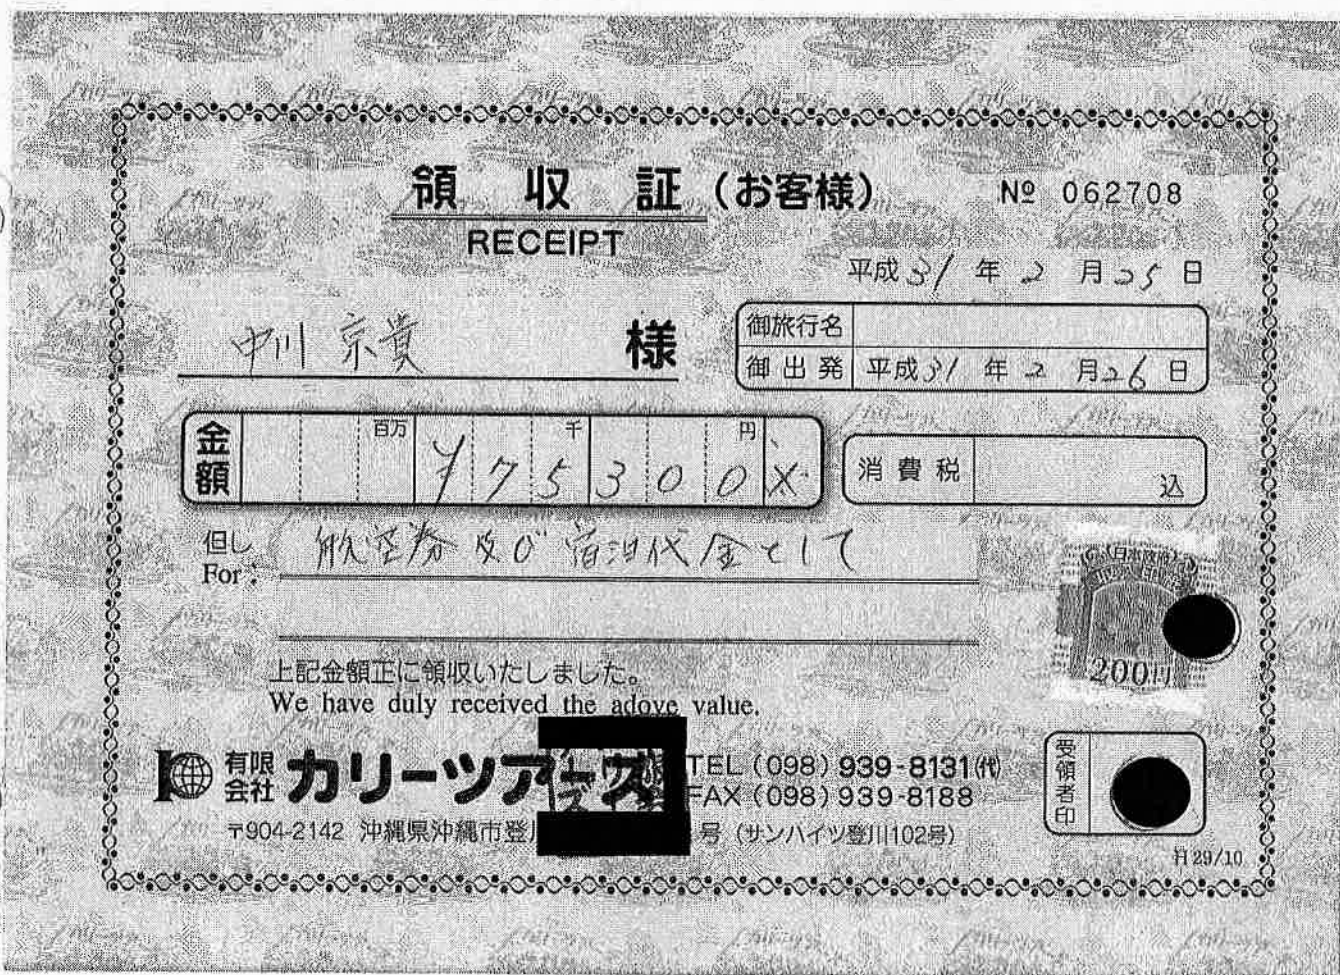 領 収 証 (お客様) № 062708
RECEIPT
平成31年2月25日
中川 京貴 様
御旅行名
御出発 平成31年2月26日
金額 百万 千 円
¥75300※
消費税 込
但し 航空券及び宿泊代金として
For:
(日本政府)
200円
上記金額正に領収いたしました。
We have duly received the adove value.
有限会社 カリーツアーズ TEL (098) 939-8131(代)
FAX (098) 939-8188
〒904-2142 沖縄県沖縄市登川 号 (サンハイツ登川102号)
受領者印
H29/10